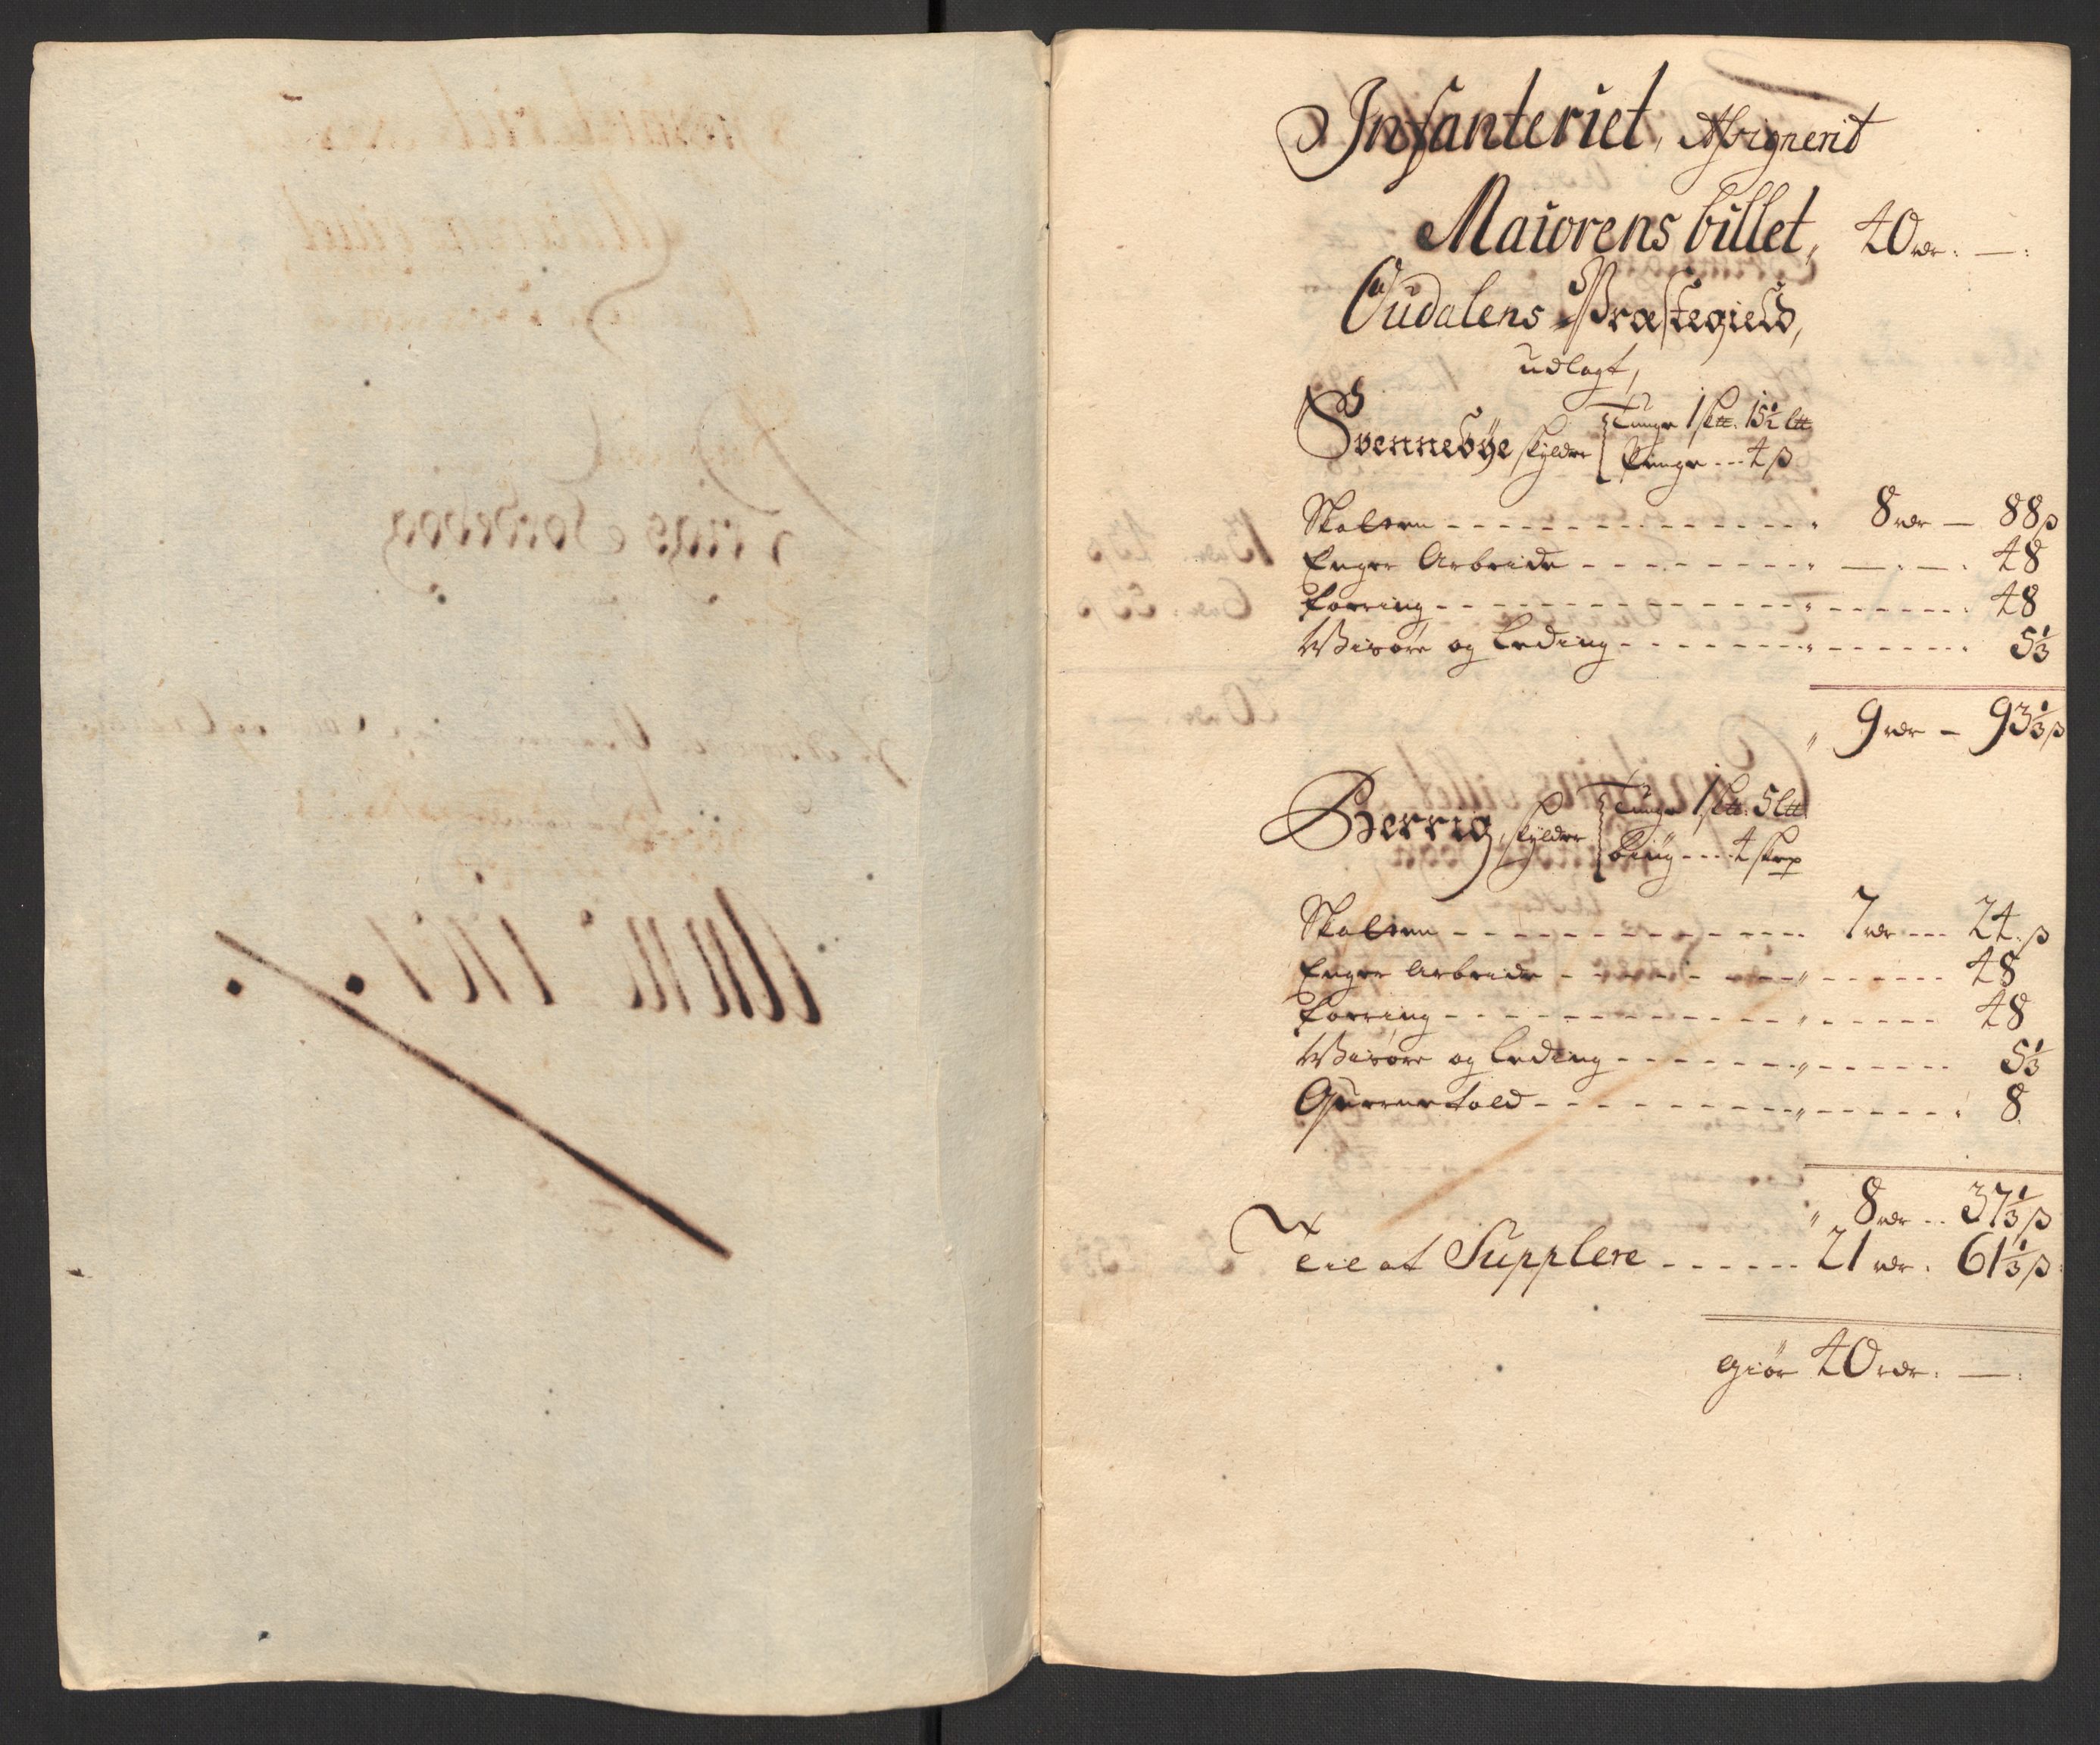 Infanteriet, Assignerit
Maiorens billet, 40 rdr: —:
Oudalens Præstegield,
udlagt,
Svennebÿe skylder Tunge 1 sk℔. 15½ L℔
Penge --- 4 β
Skatten - - - 8 rdr — 88 β
Fogr Arbeide - - - — . — . 48
Foering - - - 48
Wisøre og Leding - - - 5⅓
9 rdr — 93⅓ β
Berrig, skylder Tunge 1 sk℔: 5 L℔
Biug --- 4 skp
Skatten - - - 7 rdr --- 24 β
Arbeide - - - 48
Foering - - - 48
Wisøre og Leding - - - 5⅓
Qvernetold - - - 8
8 rdr .. 37⅓ β
Til at Supplere - - - 21 rdr. 61⅓ β
giør 40 rdr: —: